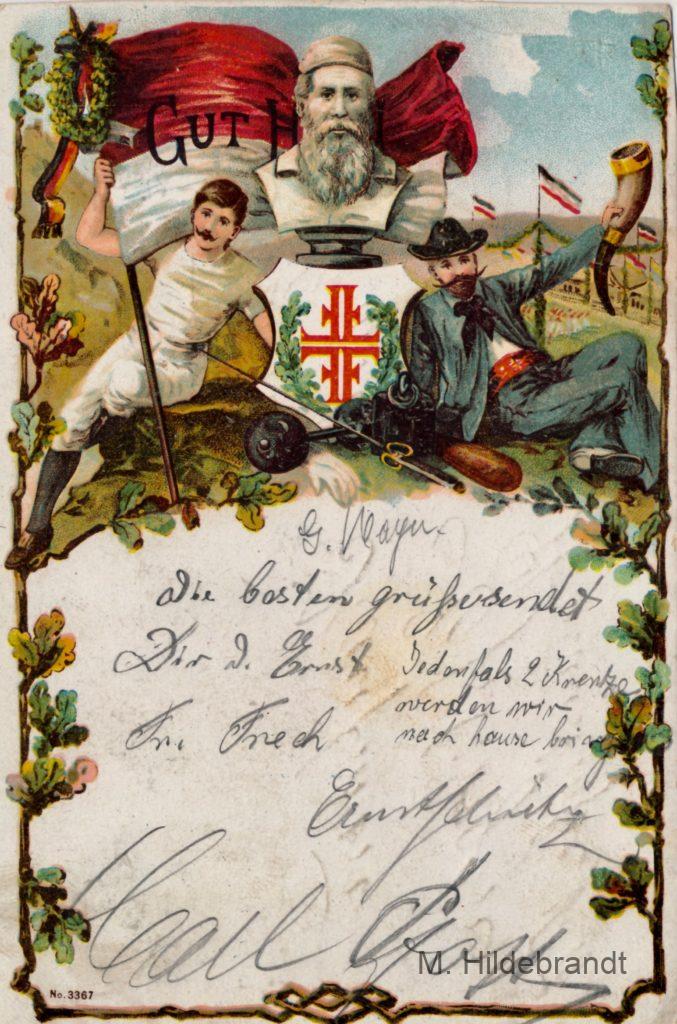 GUT H I
G. Mayer.
die besten grüße sendet
Dir d. Ernst
Fr. Frech
Jedenfals 2 Krentze
werden wir
nach hause bring
Ernst
Carl
M. Hildebrandt
No. 3367